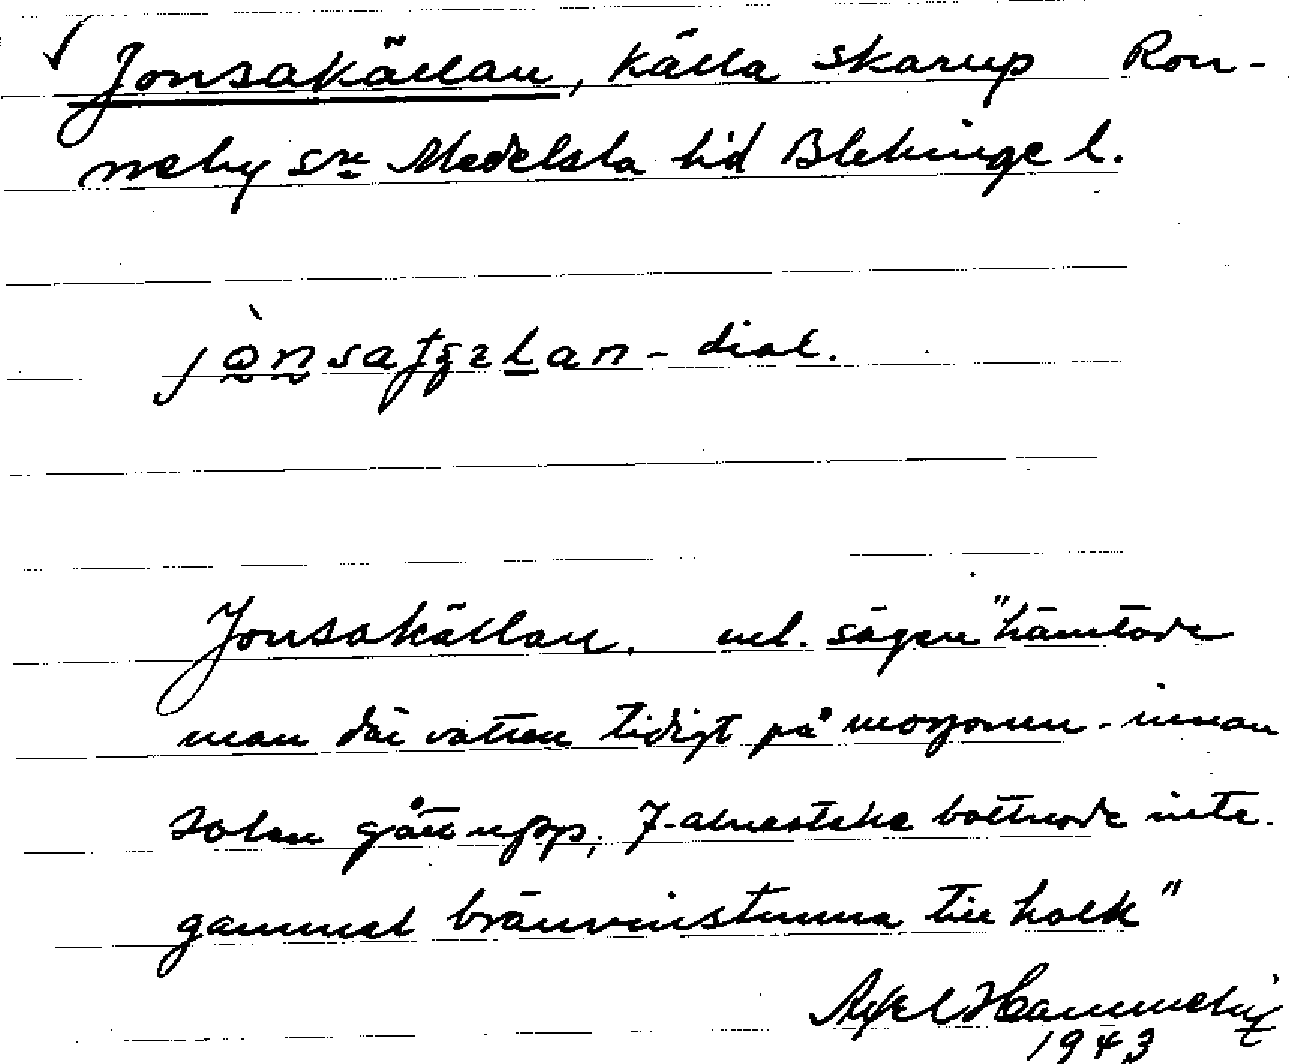 √ Jonsakällan, källa Skarup Ron-
neby sn Medelsta hd Blekinge l.
- dial.
Jonsakällan. enl. sägen "hämtade
man där vatten tidigt på morgonen - innan
solen gått upp, 7-alnestake bottnade inte.
gammal brännvinstunna till holk"
Axel
1943